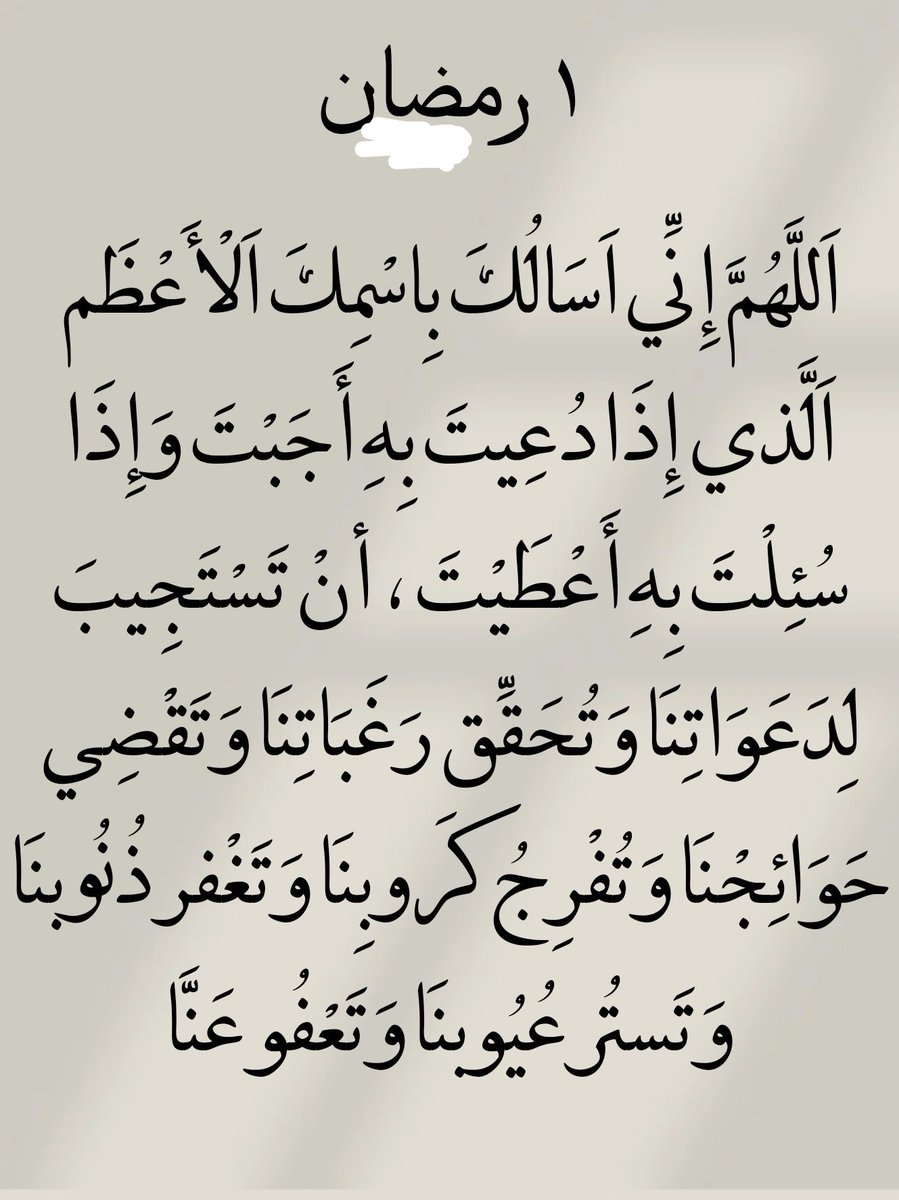 ١ رمضان
اَللَّهُمَّ إِنِّي اَسَالُكَ بِاسْمِكَ اَلْأَعْظَم
اَلَّذي إِذَا دُعِيتَ بِهِ أَجَبْتَ وَإِذَا
سُئِلْتَ بِهِ أَعْطَيْتَ ، أنْ تَسْتَجِيبَ
لِدَعَوَاتِنَا وَتُحَقِّق رَغَبَاتِنَا وَتَقْضِي
حَوَائِجْنَا وَتُفْرِجُ كَروبِنَا وَتَغْفر ذُنُوبنَا
وَتَستُر عُيُوبنَا وَتَعْفُو عَنَّا